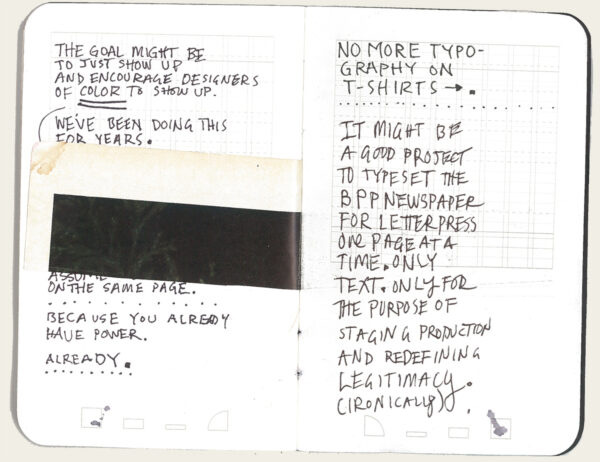 THE GOAL MIGHT BE
TO JUST SHOW UP
AND ENCOURAGE DESIGNERS
OF COLOR TO SHOW UP.
WE'VE BEEN DOING THIS
FOR YEARS.
ASSUME
ON THE SAME PAGE.
BECAUSE YOU ALREADY
HAVE POWER.
ALREADY.
NO MORE TYPO-
GRAPHY ON
T-SHIRTS →.
IT MIGHT BE
A GOOD PROJECT
TO TYPESET THE
BPP NEWSPAPER
FOR LETTERPRESS
ONE PAGE AT A
TIME. ONLY
TEXT. ONLY FOR
THE PURPOSE OF
STAGING PRODUCTION
AND REDEFINING
LEGITIMACY.
(IRONICALLY).